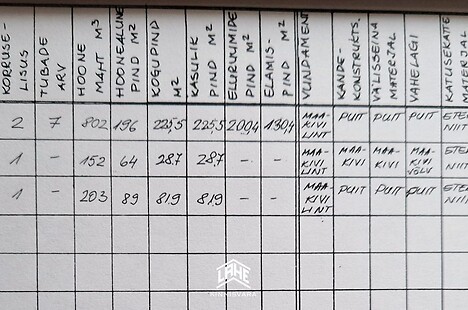 KORRUSE-LISUS | TUBADE ARV | HOONE MAHT M³ | HOONEALUNE PIND M² | KOGUPIND M² | KASULIK PIND M² | ELURUUMIDE PIND M² | ELAMIS-PIND M² | VUNDAMENT | KANDE-KONSTRUKTS. | VÄLISSEINA MATERJAL | VAHELAGI | KATUSEKATTE MATERJAL
2 7 802 196 225,5 225,5 209,4 130,4 MAA-KIVI LINT PUIT PUIT PUIT ETER NIIT
1 – 152 64 28,7 28,7 – – MAA-KIVI LINT MAA-KIVI MAA-KIVI MAA-KIVI VÕLV ETER NIIT
1 – 203 89 81,9 81,9 – – MAA-KIVI LINT PUIT PUIT PUIT ETER NIIT
LAHE
KINNISVARA